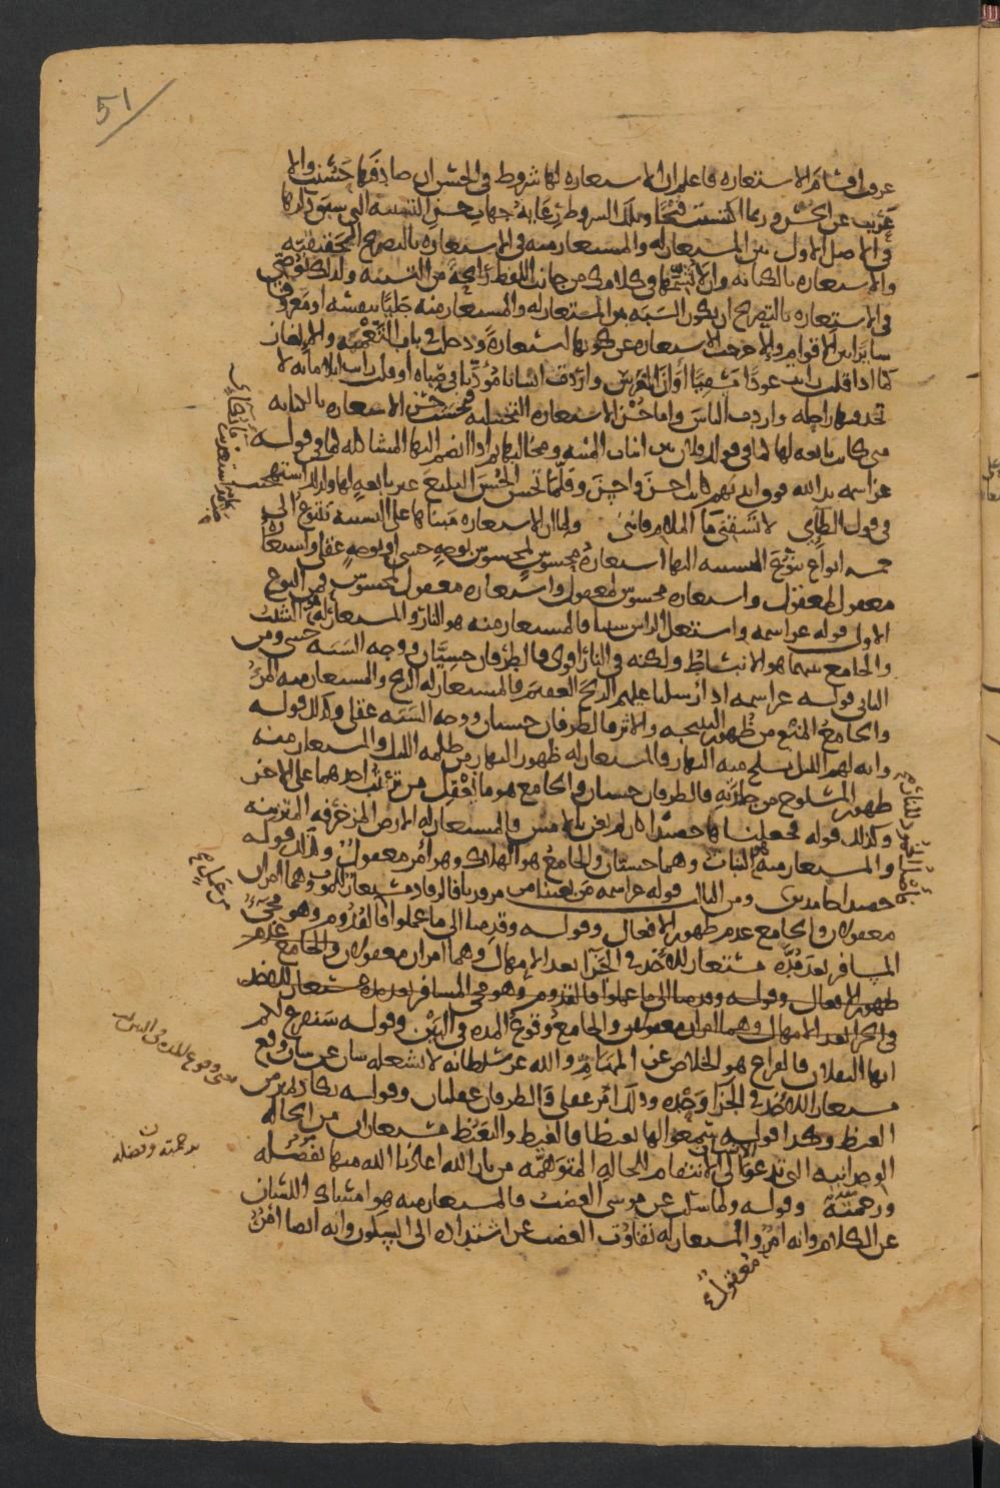 51
عرفت اقسام الاستعاره فاعلم ان الاستعاره لها شروط في الحسن ان صادفتها حسنت والا
عريت عن الحسن وربما اكتست قبحا وتلك الشروط رعايه جهات حسن التشبيه التي سبق ذكرها
في الاصل الاول بين المستعار له والمستعار منه في الاستعاره بالتصريح التحقيقيه
والاستعاره بالكنايه وان لا تشمها في كلامك من جانب اللفظ رائحة من التشبيه ولذلك نوصي
في الاستعاره بالتصريح ان يكون الشبه بين المستعار له والمستعار منه جليا بنفسه او معروفا
سائرا بين الاقوام والا خرجت الاستعاره عن كونها استعارة ودخلت في باب التعميه والالغاز
كما اذا قلت رايت عودا مسقيا اوان الغرس واردت انسانا مؤدبا في صباه او قلت رايت ابلا مائه لا
تجد فيها راحله واردت الناس واما حسن الاستعاره التخييليه فبحسب حسن الاستعاره بالكنايه
متى كانت تابعه لها كما في قولك فلان بين انياب المنيه ومخالبها ثم اذا انضم اليها المشاكله كما في قوله
عز اسمه يد الله فوق ايديهم كانت احسن واحسن وقلما تحسن الحسن البليغ غير تابعه لها ولذلك استهجنت
في قول الطائي لا تسقني ما الملام فانني ولما ان الاستعاره مبناها على التشبيه تتنوع الى
خمسه انواع تنوع التشبيه اليها استعارة محسوس لمحسوس بوجه حسي او بوجه عقلي واستعاره
معقول لمعقول واستعاره محسوس لمعقول واستعاره معقول لمحسوس فمن النوع
الاول قوله عز اسمه واشتعل الراس شيبا فالمستعار منه هو النار والمستعار له هو الشيب
والجامع بينهما هو الانبساط ولكنه في النار اقوى فالطرفان حسيان ووجه الشبه حسي ومن
الثاني قوله عز اسمه اذ ارسلنا عليهم الريح العقيم فالمستعار له الريح والمستعار منه المرء
والجامع المنع من ظهور النتيجه والاثر فالطرفان حسيان ووجه الشبه عقلي وكذلك قوله
وايه لهم الليل نسلخ منه النهار فالمستعار له ظهور النهار من ظلمه الليل والمستعار منه
ظهور المسلوخ من جلدته فالطرفان حسيان والجامع هو ما يعقل من ترتب احدهما على الاخر
وكذلك قوله فجعلناها حصيدا كان لم تغن بالامس فالمستعار له الارض المزخرفه المتزينه
والمستعار منه النبات وهما حسيان والجامع هو الهلاك وهو امر معقول وكذلك قوله
حصيدا خامدين ومن الثالث قوله عز اسمه من بعثنا من مرقدنا فالرقاد مستعار للموت وهما امران
معقولان والجامع عدم ظهور الافعال وقوله وقدمنا الى ما عملوا فالقدوم وهو مجيء
المسافر بعد مده مستعار للاخذ في الجزا بعد الامهال وهما امران معقولان والجامع عدم
ظهور الافعال وقوله وقدمنا الى ما عملوا فالقدوم وهو مجي المسافر بعد مده مستعار للاخذ
في الجزا بعد الامهال وهما امران معقولان والجامع وقوع المده في البين وقوله سنفرغ لكم
ايها الثقلان فالفراغ هو الخلاص عن المهام والله عز سلطانه لا يشغله شان عن شان وقع
مستعارا للاخذ في الجزا وحده وذلك امر عقلي فالطرفان عقليان وقوله تكاد تميز من
الغيظ وكذا قوله سمعوا لها تغيظا فالغيظ والتغيظ مستعاران من الحاله
الوجدانيه التي تدعو الى الانتقام للحاله المتوهمه من نار الله اعاذنا الله منها بفضله
ورحمته وقوله ولما سكت عن موسى الغضب فالمستعار منه هو امساك اللسان
عن الكلام وانه امر والمستعار له تفاوت الغضب عن اشتداده الى السكون وانه ايضا امر
معقول
برحمته وفضله